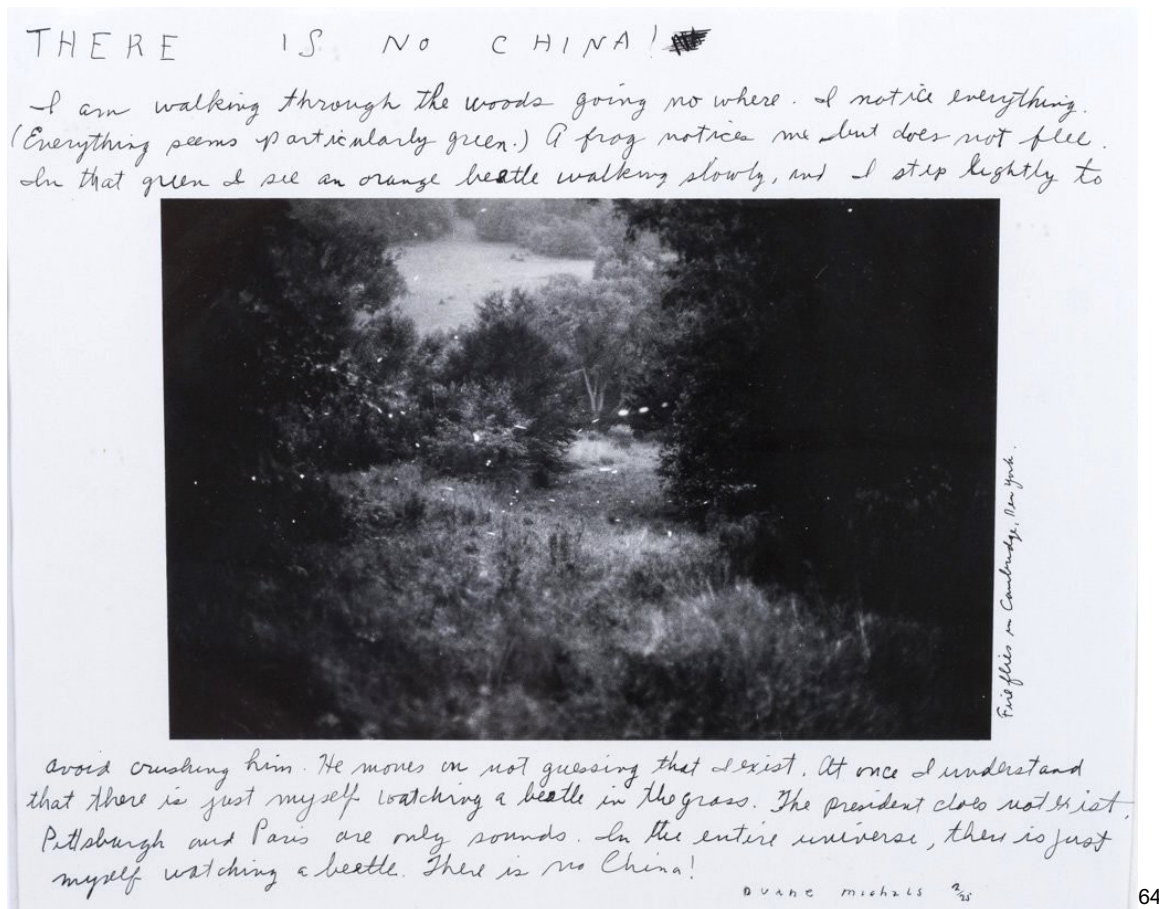 THERE IS NO CHINA!
I am walking through the woods going no where. I notice everything.
(Everything seems particularly green.) A frog notices me but does not flee.
In that green I see an orange beetle walking slowly, and I step lightly to
Fireflies in Cambridge, New York.
avoid crushing him. He moves on not guessing that I exist. At once I understand
that there is just myself watching a beetle in the grass. The president does not exist.
Pittsburgh and Paris are only sounds. In the entire universe, there is just
myself watching a beetle. There is no China!
Duane Michals 2/25
64